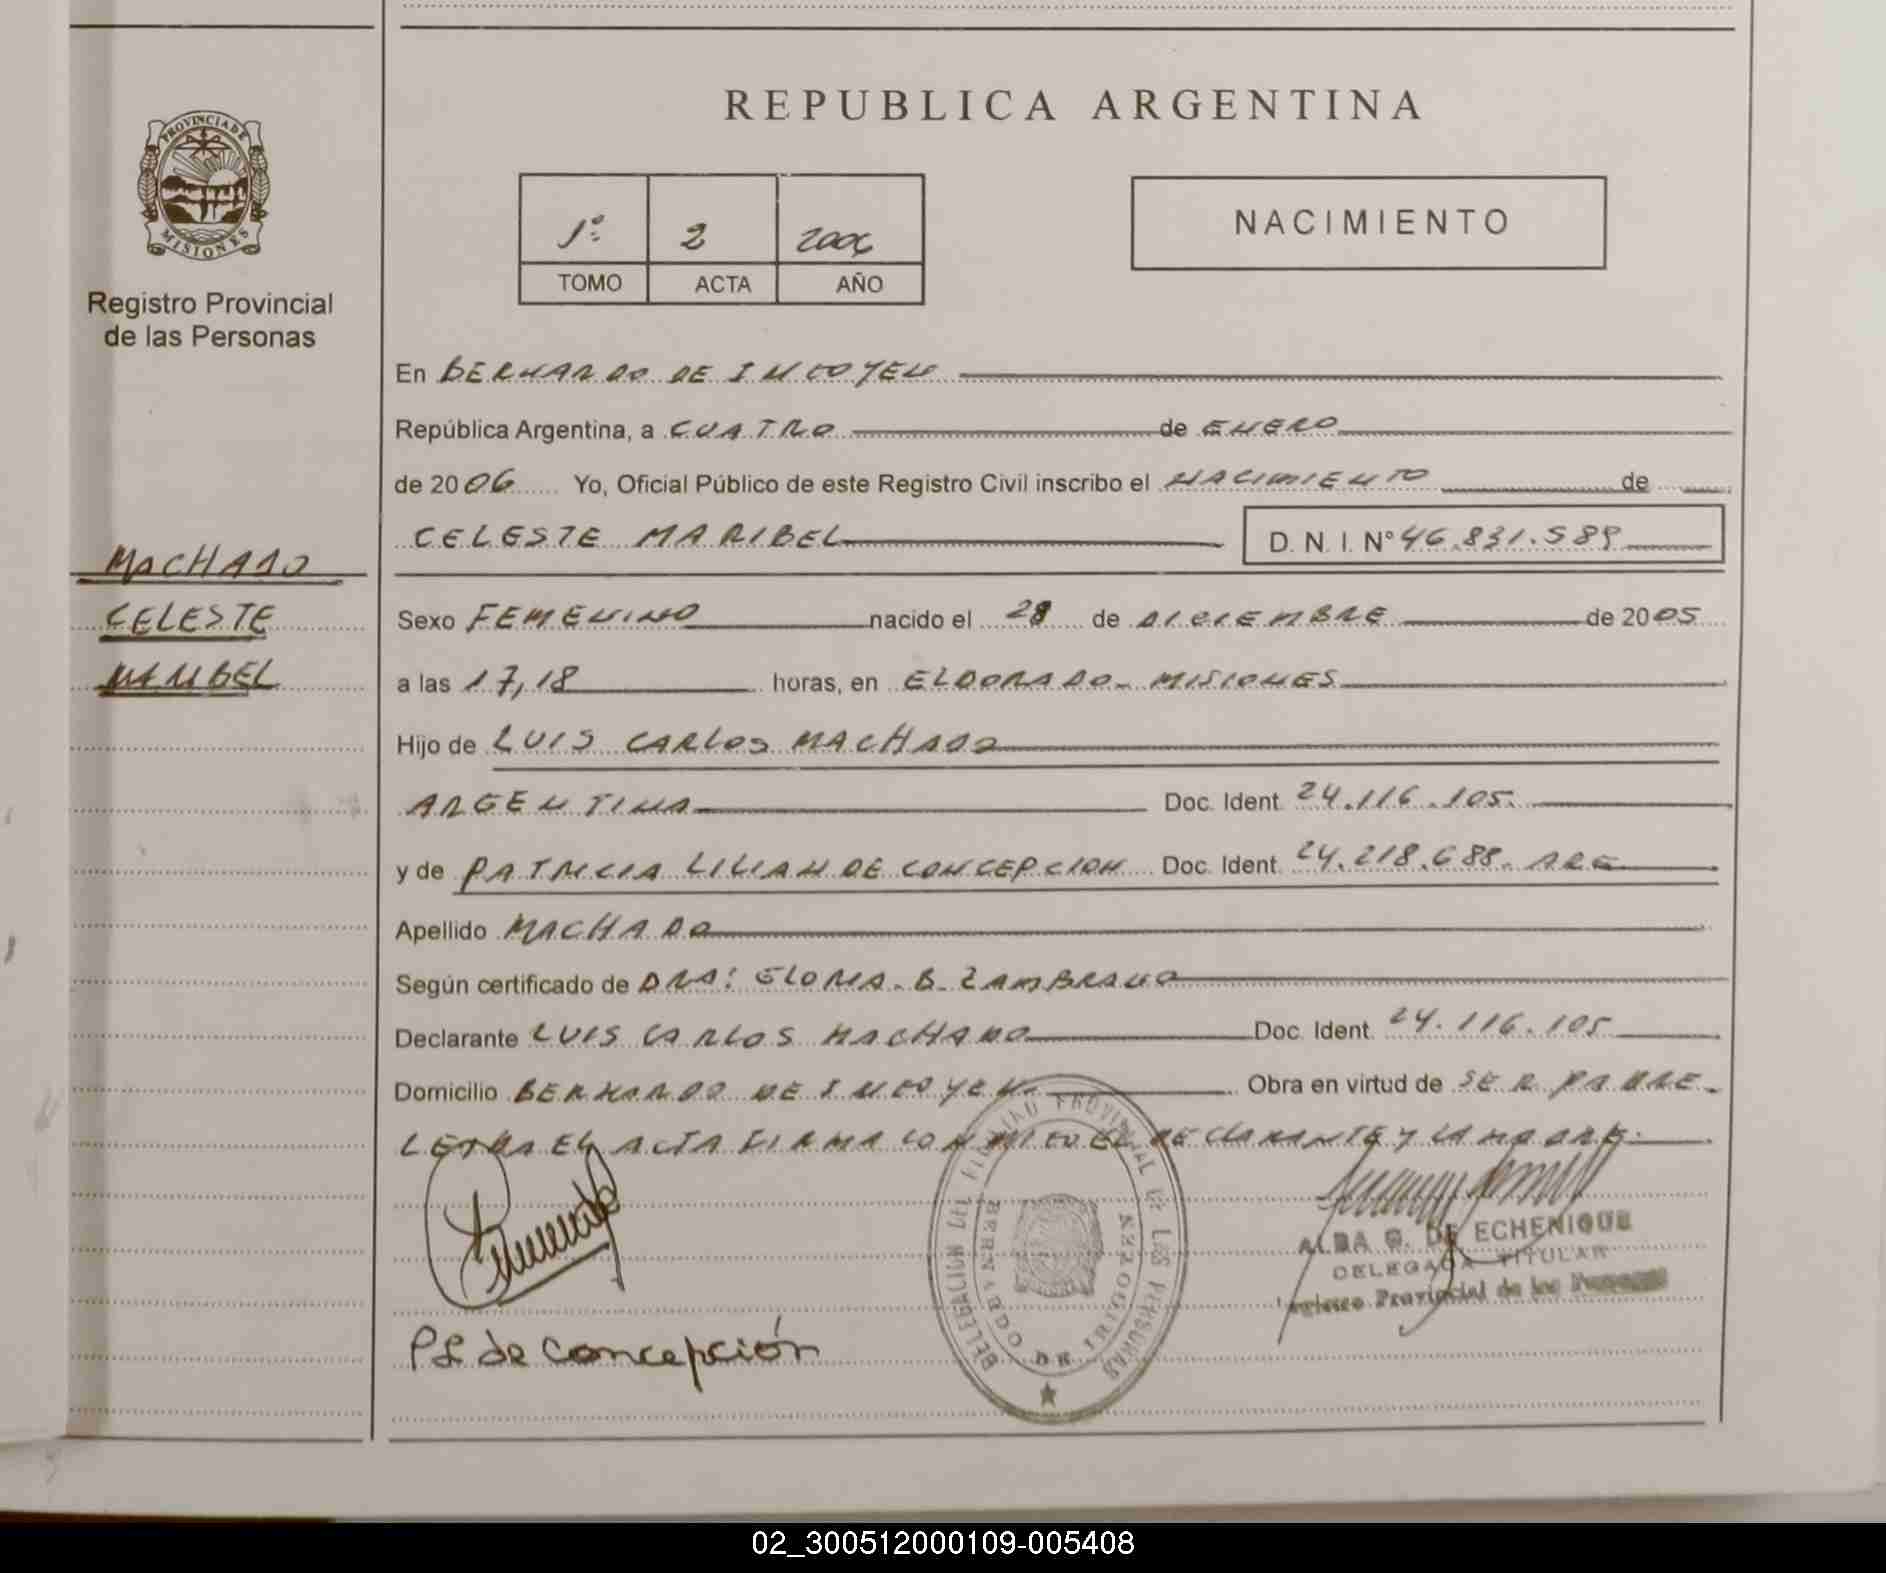 REPUBLICA ARGENTINA
PROVINCIA DE
MISIONES
Registro Provincial
de las Personas
1º 2 2006
TOMO ACTA AÑO
NACIMIENTO
En BERNARDO DE IRIGOYEN
República Argentina, a CUATRO de ENERO
de 2006 Yo, Oficial Público de este Registro Civil inscribo el NACIMIENTO de
CELESTE MARIBEL D. N. I. N° 46.831.589
MACHADO
CELESTE
MARIBEL
Sexo FEMENINO nacido el 28 de DICIEMBRE de 2005
a las 17,18 horas, en ELDORADO - MISIONES
Hijo de LUIS CARLOS MACHADO
ARGENTINA Doc. Ident. 24.116.105.
y de PATRICIA LILIAN DE CONCEPCION Doc. Ident. 24.218.688. ARG
Apellido MACHADO
Según certificado de DRA: GLORIA. B. ZAMBRANO
Declarante LUIS CARLOS MACHADO Doc. Ident. 24.116.105
Domicilio BERNARDO DE IRIGOYEN. Obra en virtud de SER PADRE.
LEIDA EL ACTA FIRMA CONMIGO EL DECLARANTE Y LA MADRE.
DELEGACION DEL REGISTRO PROVINCIAL DE LAS PERSONAS
BERNARDO DE IRIGOYEN
ALBA G. DE ECHENIQUE
DELEGADA TITULAR
Registro Provincial de las Personas
PL de Concepción
02_300512000109-005408